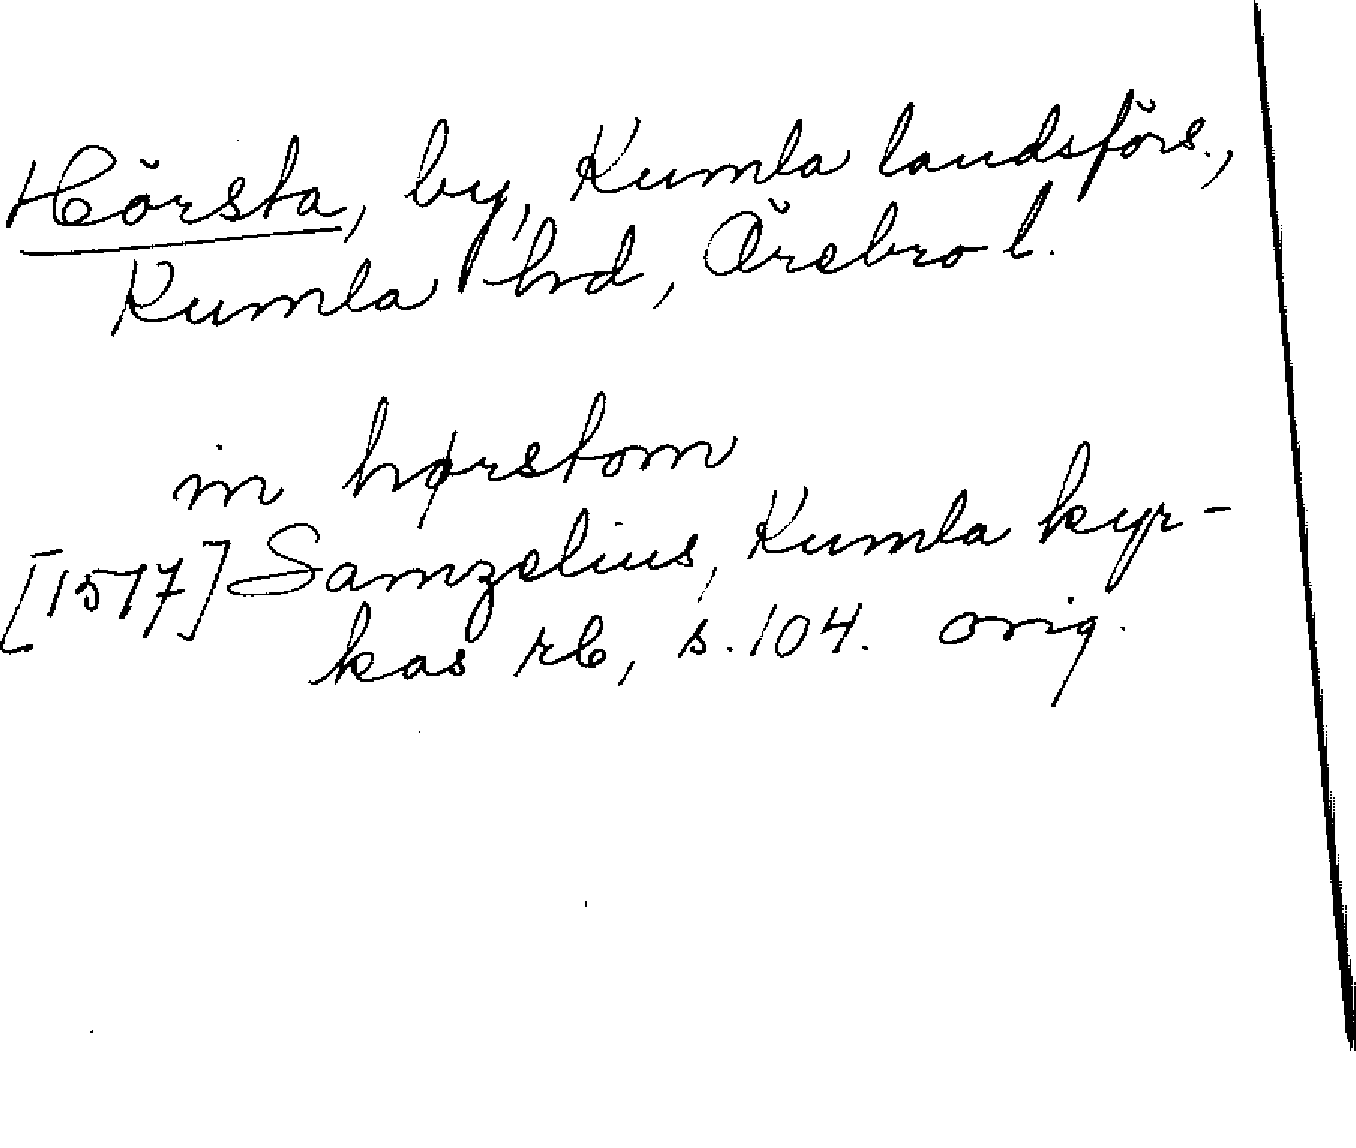 Hörsta, by, Kumla landsförs.,
Kumla hd, Örebro l.
in hørstom
[1517] Samzelius, Kumla kyr-
kas rb, s. 104. orig.